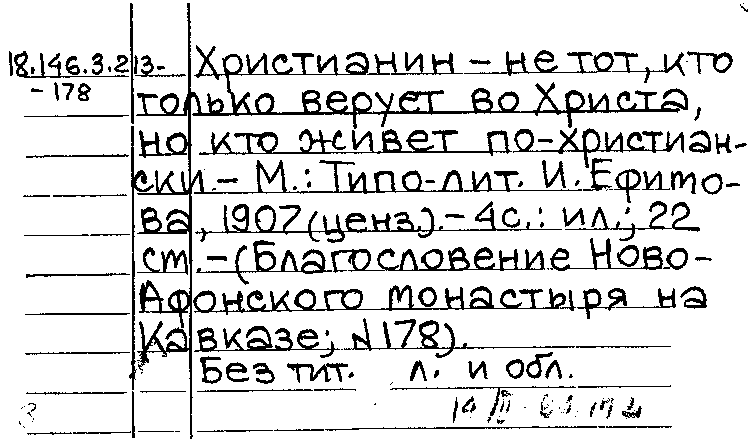 18.146.3.213-
-178
Христианин - не тот, кто
только верует во Христа,
но кто живет по-христиан-
ски. - М.: Типо-лит. И. Ефимо-
ва, 1907 (ценз.). - 4с.: ил.; 22
см. - (Благословение Ново-
Афонского монастыря на
Кавказе; N 178).
Без тит. л. и обл.